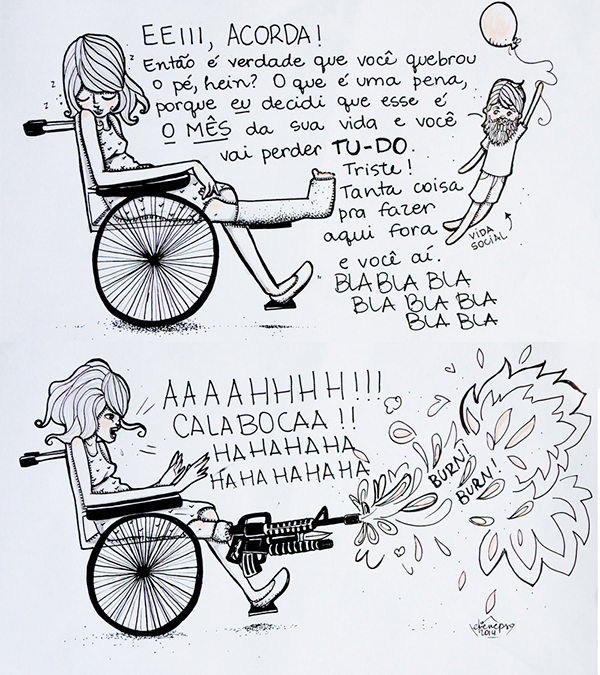 EEIII, ACORDA!
Então é verdade que você quebrou
o pé, hein? O que é uma pena,
porque eu decidi que esse é
O MÊS da sua vida e você
vai perder TU-DO.
Triste!
Tanta coisa
pra fazer
aqui fora
e você aí.
BLA BLA BLA
BLA BLA BLA
BLA BLA
VIDA
SOCIAL
z z
z z
AAAAHHHH!!!
CALABOCAA!!
HAHAHAHA
HAHAHAHAHA
BURN!
BURN!
2014